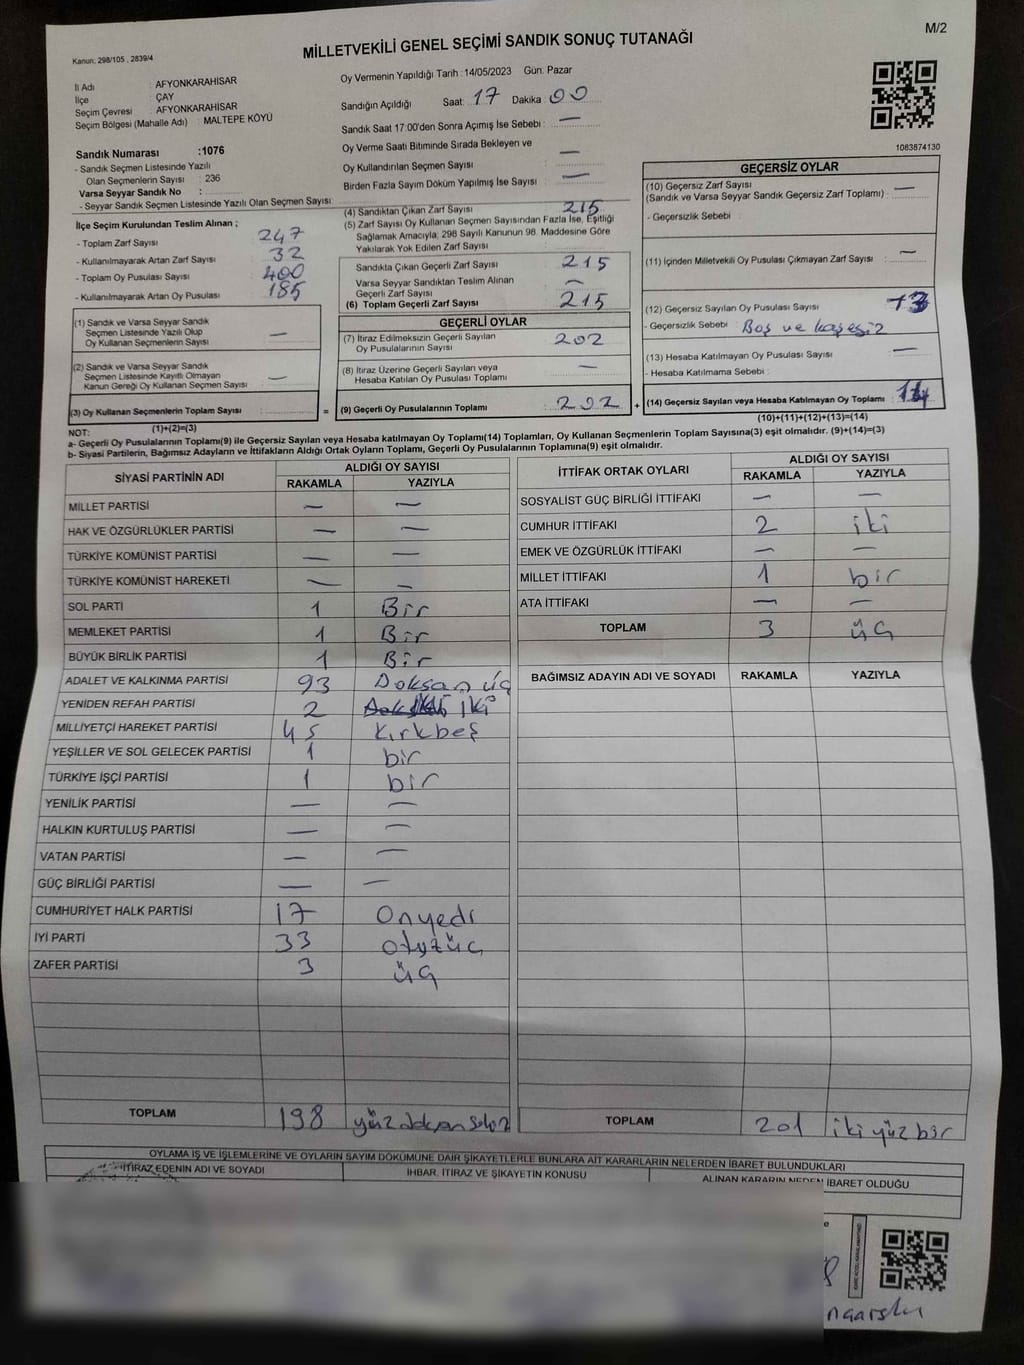 M/2
Kanun: 298/105 , 2839/4
MİLLETVEKİLİ GENEL SEÇİMİ SANDIK SONUÇ TUTANAĞI
İl Adı : AFYONKARAHİSAR
İlçe : ÇAY
Seçim Çevresi : AFYONKARAHİSAR
Seçim Bölgesi (Mahalle Adı) : MALTEPE KÖYÜ
Sandık Numarası :1076
- Sandık Seçmen Listesinde Yazılı
Olan Seçmenlerin Sayısı : 236
Varsa Seyyar Sandık No :
- Seyyar Sandık Seçmen Listesinde Yazılı Olan Seçmen Sayısı :
Oy Vermenin Yapıldığı Tarih :14/05/2023 Gün: Pazar
Sandığın Açıldığı Saat: 17 Dakika : 00
Sandık Saat 17:00'den Sonra Açımış İse Sebebi : —
Oy Verme Saati Bitiminde Sırada Bekleyen ve
Oy Kullandırılan Seçmen Sayısı : —
Birden Fazla Sayım Döküm Yapılmış İse Sayısı : —
1063874130
İlçe Seçim Kurulundan Teslim Alınan ;
- Toplam Zarf Sayısı : 247
- Kullanılmayarak Artan Zarf Sayısı : 32
- Toplam Oy Pusulası Sayısı : 400
- Kullanılmayarak Artan Oy Pusulası : 185
(1) Sandık ve Varsa Seyyar Sandık
Seçmen Listesinde Yazılı Olup
Oy Kullanan Seçmenlerin Sayısı : —
(2) Sandık ve Varsa Seyyar Sandık
Seçmen Listesinde Kayıtlı Olmayan
Kanun Gereği Oy Kullanan Seçmen Sayısı : —
(3) Oy Kullanan Seçmenlerin Toplam Sayısı :
(1)+(2)=(3)
(4) Sandıktan Çıkan Zarf Sayısı : 215
(5) Zarf Sayısı Oy Kullanan Seçmen Sayısından Fazla İse, Eşitliği
Sağlamak Amacıyla; 298 Sayılı Kanunun 98. Maddesine Göre
Yakılarak Yok Edilen Zarf Sayısı :
Sandıkta Çıkan Geçerli Zarf Sayısı : 215
Varsa Seyyar Sandıktan Teslim Alınan
Geçerli Zarf Sayısı : —
(6) Toplam Geçerli Zarf Sayısı : 215
GEÇERLİ OYLAR
(7) İtiraz Edilmeksizin Geçerli Sayılan
Oy Pusulalarının Sayısı : 202
(8) İtiraz Üzerine Geçerli Sayılan veya
Hesaba Katılan Oy Pusulası Toplamı : —
= (9) Geçerli Oy Pusulalarının Toplamı : 202 +
GEÇERSİZ OYLAR
(10) Geçersiz Zarf Sayısı
(Sandık ve Varsa Seyyar Sandık Geçersiz Zarf Toplamı) : —
- Geçersizlik Sebebi :
(11) İçinden Milletvekili Oy Pusulası Çıkmayan Zarf Sayısı : —
(12) Geçersiz Sayılan Oy Pusulası Sayısı : 13
- Geçersizlik Sebebi : Boş ve kaşesiz
(13) Hesaba Katılmayan Oy Pusulası Sayısı : —
- Hesaba Katılmama Sebebi :
(14) Geçersiz Sayılan veya Hesaba Katılmayan Oy Toplamı :
(10)+(11)+(12)+(13)=(14)
NOT:
a- Geçerli Oy Pusulalarının Toplamı(9) ile Geçersiz Sayılan veya Hesaba katılmayan Oy Toplamı(14) Toplamları, Oy Kullanan Seçmenlerin Toplam Sayısına(3) eşit olmalıdır. (9)+(14)=(3)
b- Siyasi Partilerin, Bağımsız Adayların ve İttifakların Aldığı Ortak Oyların Toplamı, Geçerli Oy Pusulalarının Toplamına(9) eşit olmalıdır.
SİYASİ PARTİNİN ADI ALDIĞI OY SAYISI
RAKAMLA YAZIYLA
MİLLET PARTİSİ — —
HAK VE ÖZGÜRLÜKLER PARTİSİ — —
TÜRKİYE KOMÜNİST PARTİSİ — —
TÜRKİYE KOMÜNİST HAREKETİ — —
SOL PARTİ 1 Bir
MEMLEKET PARTİSİ 1 Bir
BÜYÜK BİRLİK PARTİSİ 1 Bir
ADALET VE KALKINMA PARTİSİ 93 Doksan üç
YENİDEN REFAH PARTİSİ 2 iki
MİLLİYETÇİ HAREKET PARTİSİ 45 kırkbeş
YEŞİLLER VE SOL GELECEK PARTİSİ 1 bir
TÜRKİYE İŞÇİ PARTİSİ 1 bir
YENİLİK PARTİSİ — —
HALKIN KURTULUŞ PARTİSİ — —
VATAN PARTİSİ — —
GÜÇ BİRLİĞİ PARTİSİ — —
CUMHURİYET HALK PARTİSİ 17 Onyedi
İYİ PARTİ 33 otuzüç
ZAFER PARTİSİ 3 üç
TOPLAM 198 yüz doksan sekiz
İTTİFAK ORTAK OYLARI ALDIĞI OY SAYISI
RAKAMLA YAZIYLA
SOSYALİST GÜÇ BİRLİĞİ İTTİFAKI — —
CUMHUR İTTİFAKI 2 iki
EMEK VE ÖZGÜRLÜK İTTİFAKI — —
MİLLET İTTİFAKI 1 bir
ATA İTTİFAKI — —
TOPLAM 3 üç
BAĞIMSIZ ADAYIN ADI VE SOYADI RAKAMLA YAZIYLA
TOPLAM 201 iki yüz bir
OYLAMA İŞ VE İŞLEMLERİNE VE OYLARIN SAYIM DÖKÜMÜNE DAİR ŞİKAYETLERLE BUNLARA AİT KARARLARIN NELERDEN İBARET BULUNDUKLARI
İTİRAZ EDENİN ADI VE SOYADI İHBAR, İTİRAZ VE ŞİKAYETİN KONUSU ALINAN KARARIN NEDEN İBARET OLDUĞU